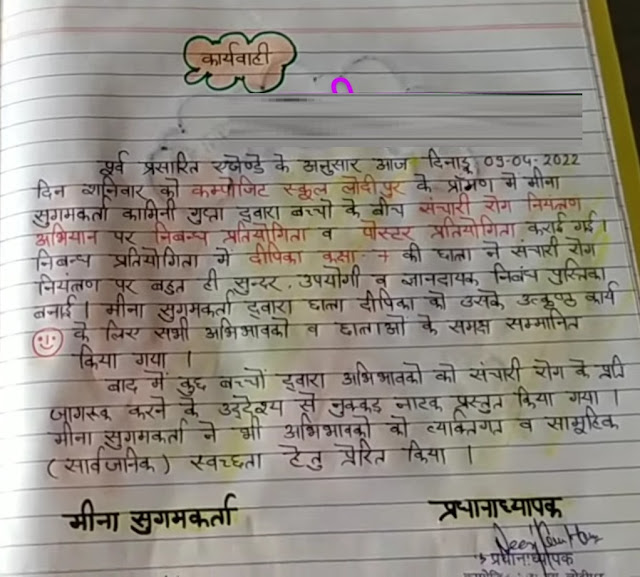 कार्यवाही
पूर्व प्रसारित एजेण्डे के अनुसार आज दिनाङ्क 09-04-2022
दिन शनिवार को कम्पोजिट स्कूल लोदीपुर के प्राँगण में मीना
सुगमकर्ता कामिनी गुप्ता द्वारा बच्चो के बीच संचारी रोग नियंत्रण
अभियान पर निबन्ध प्रतियोगिता व पोस्टर प्रतियोगिता कराई गई।
निबन्ध प्रतियोगिता में दीपिका कक्षा - 7 की छात्रा ने संचारी रोग
नियंत्रण पर बहुत ही सुन्दर, उपयोगी व ज्ञानदायक निबंध पुस्तिका
बनाई। मीना सुगमकर्ता द्वारा छात्रा दीपिका को उसके उत्कृष्ठ कार्य
के लिए सभी अभिभावको व छात्राओं के समक्ष सम्मानित
किया गया।
बाद में कुछ बच्चों द्वारा अभिभावको को संचारी रोग के प्रति
जागरूक करने के उद्देश्य से नुक्कड़ नाटक प्रस्तुत किया गया।
मीना सुगमकर्ता ने भी अभिभावको को व्यक्तिगत व सामूहिक
(सार्वजनिक) स्वच्छता हेतु प्रेरित किया।
मीना सुगमकर्ता प्रधानाध्यापक
प्रधानाध्यापक